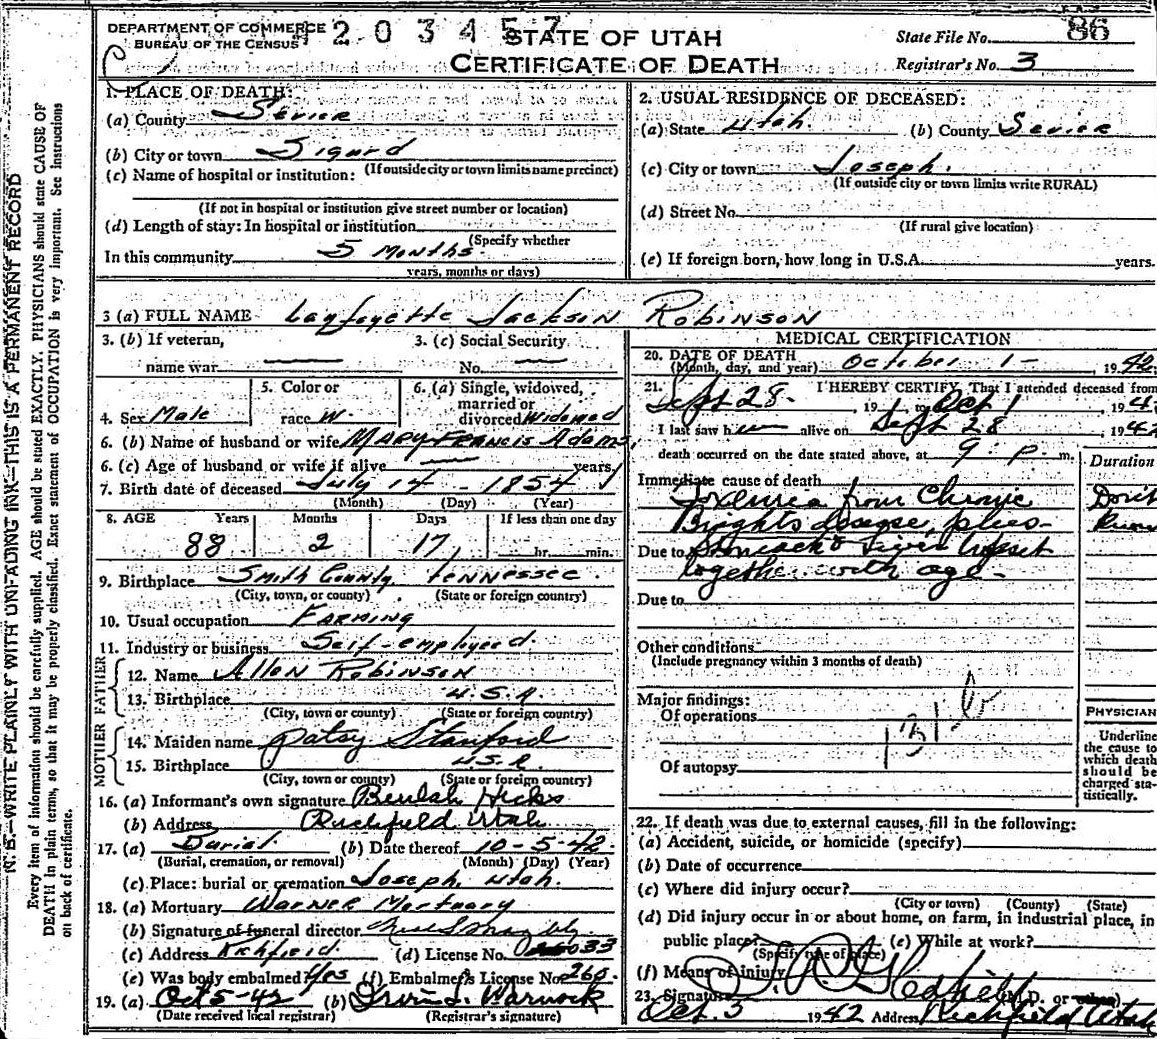 DEPARTMENT OF COMMERCE
BUREAU OF THE CENSUS
203457
STATE OF UTAH
CERTIFICATE OF DEATH
State File No. 86
Registrar's No. 3
1. PLACE OF DEATH:
(a) County Sevier
(b) City or town Sigurd
(If outside city or town limits name precinct)
(c) Name of hospital or institution:
(If not in hospital or institution give street number or location)
(d) Length of stay: In hospital or institution
(Specify whether
In this community 5 Months.
years, months or days)
2. USUAL RESIDENCE OF DECEASED:
(a) State Utah (b) County Sevier
(c) City or town Joseph.
(If outside city or town limits write RURAL)
(d) Street No.
(If rural give location)
(e) If foreign born, how long in U.S.A. years.
3 (a) FULL NAME Layfoyette Jackson Robinson
3. (b) If veteran, name war
3. (c) Social Security No.
4. Sex Male
5. Color or race W.
6. (a) Single, widowed, married or divorced Widowed
6. (b) Name of husband or wife Mary Francis Adams
6. (c) Age of husband or wife if alive years
7. Birth date of deceased July 14 - 1854
(Month) (Day) (Year)
8. AGE Years Months Days If less than one day
88 2 17 hr. min.
9. Birthplace Smith County. Tennessee.
(City, town, or county) (State or foreign country)
10. Usual occupation Farming
11. Industry or business Self-employed.
FATHER
12. Name Allen Robinson
13. Birthplace U.S.A.
(City, town or county) (State or foreign country)
MOTHER
14. Maiden name Patsy Stanford
15. Birthplace U.S.A.
(City, town or county) (State or foreign country)
16. (a) Informant's own signature Beulah Hicks
(b) Address Richfield Utah
17. (a) Burial. (b) Date thereof 10-5-42.
(Burial, cremation, or removal) (Month) (Day) (Year)
(c) Place: burial or cremation Joseph, Utah.
18. (a) Mortuary Warner Mortuary
(b) Signature of funeral director
(c) Address Richfield (d) License No. 033
(e) Was body embalmed? Yes (f) Embalmer's License No. 260.
19. (a) Oct 5-42 (b) Irvin L. Warnock
(Date received local registrar) (Registrar's signature)
MEDICAL CERTIFICATION
20. DATE OF DEATH
(Month, day, and year) October 1- 1942.
21. I HEREBY CERTIFY, That I attended deceased from
Sept 28- 19 to Oct 1 194
I last saw h alive on Sept 28 1942
death occurred on the date stated above, at 9: p m.
Duration
Immediate cause of death
Toxemia from Chronic
Brights disease, plus-
Due to Stomach & Liver Upset
together with age-
Due to
Other conditions
(Include pregnancy within 3 months of death)
Major findings:
Of operations
131-b
Of autopsy
PHYSICIAN
Underline
the cause to
which death
should be
charged sta-
tistically.
22. If death was due to external causes, fill in the following:
(a) Accident, suicide, or homicide (specify)
(b) Date of occurrence
(c) Where did injury occur?
(City or town) (County) (State)
(d) Did injury occur in or about home, on farm, in industrial place, in
public place? (e) While at work?
(Specify type of place)
(f) Means of injury
23. Signature (M.D. or other)
Oct. 3 1942 Address Richfield Utah
N. B.—WRITE PLAINLY WITH UNFADING INK—THIS IS A PERMANENT RECORD
Every item of information should be carefully supplied. AGE should be stated EXACTLY. PHYSICIANS should state CAUSE OF
DEATH in plain terms, so that it may be properly classified. Exact statement of OCCUPATION is very important. See instructions
on back of certificate.